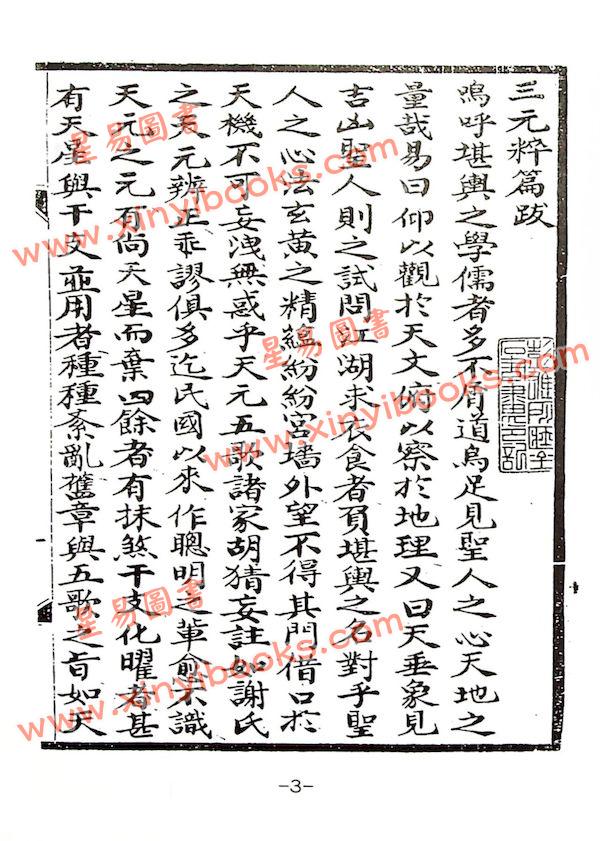 三元粹篇跋
嗚呼堪輿之學儒者多不屑道烏足見聖人之心天地之
量哉易曰仰以觀於天文俯以察於地理又曰天垂象見
吉凶聖人則之試問江湖求衣食者頁堪輿之名對乎聖
人之心法玄黃之精蘊紛紛宮墻外望不得其門借口於
天機不可妄洩無惑乎天元五歌諸家胡猜妄註如謝氏
之天元辨正乖謬俱多迄民國以來作聰明之輩俞不識
天元之元有尚天星而棄四餘者有抹煞干支化曜者甚
有天星與干支並用者種種紊亂舊章與五歌之旨如天
星易圖書
www.xinyibooks.com
星易圖書
www.xinyibooks.com
星易圖書
www.xinyibooks.com
-3-